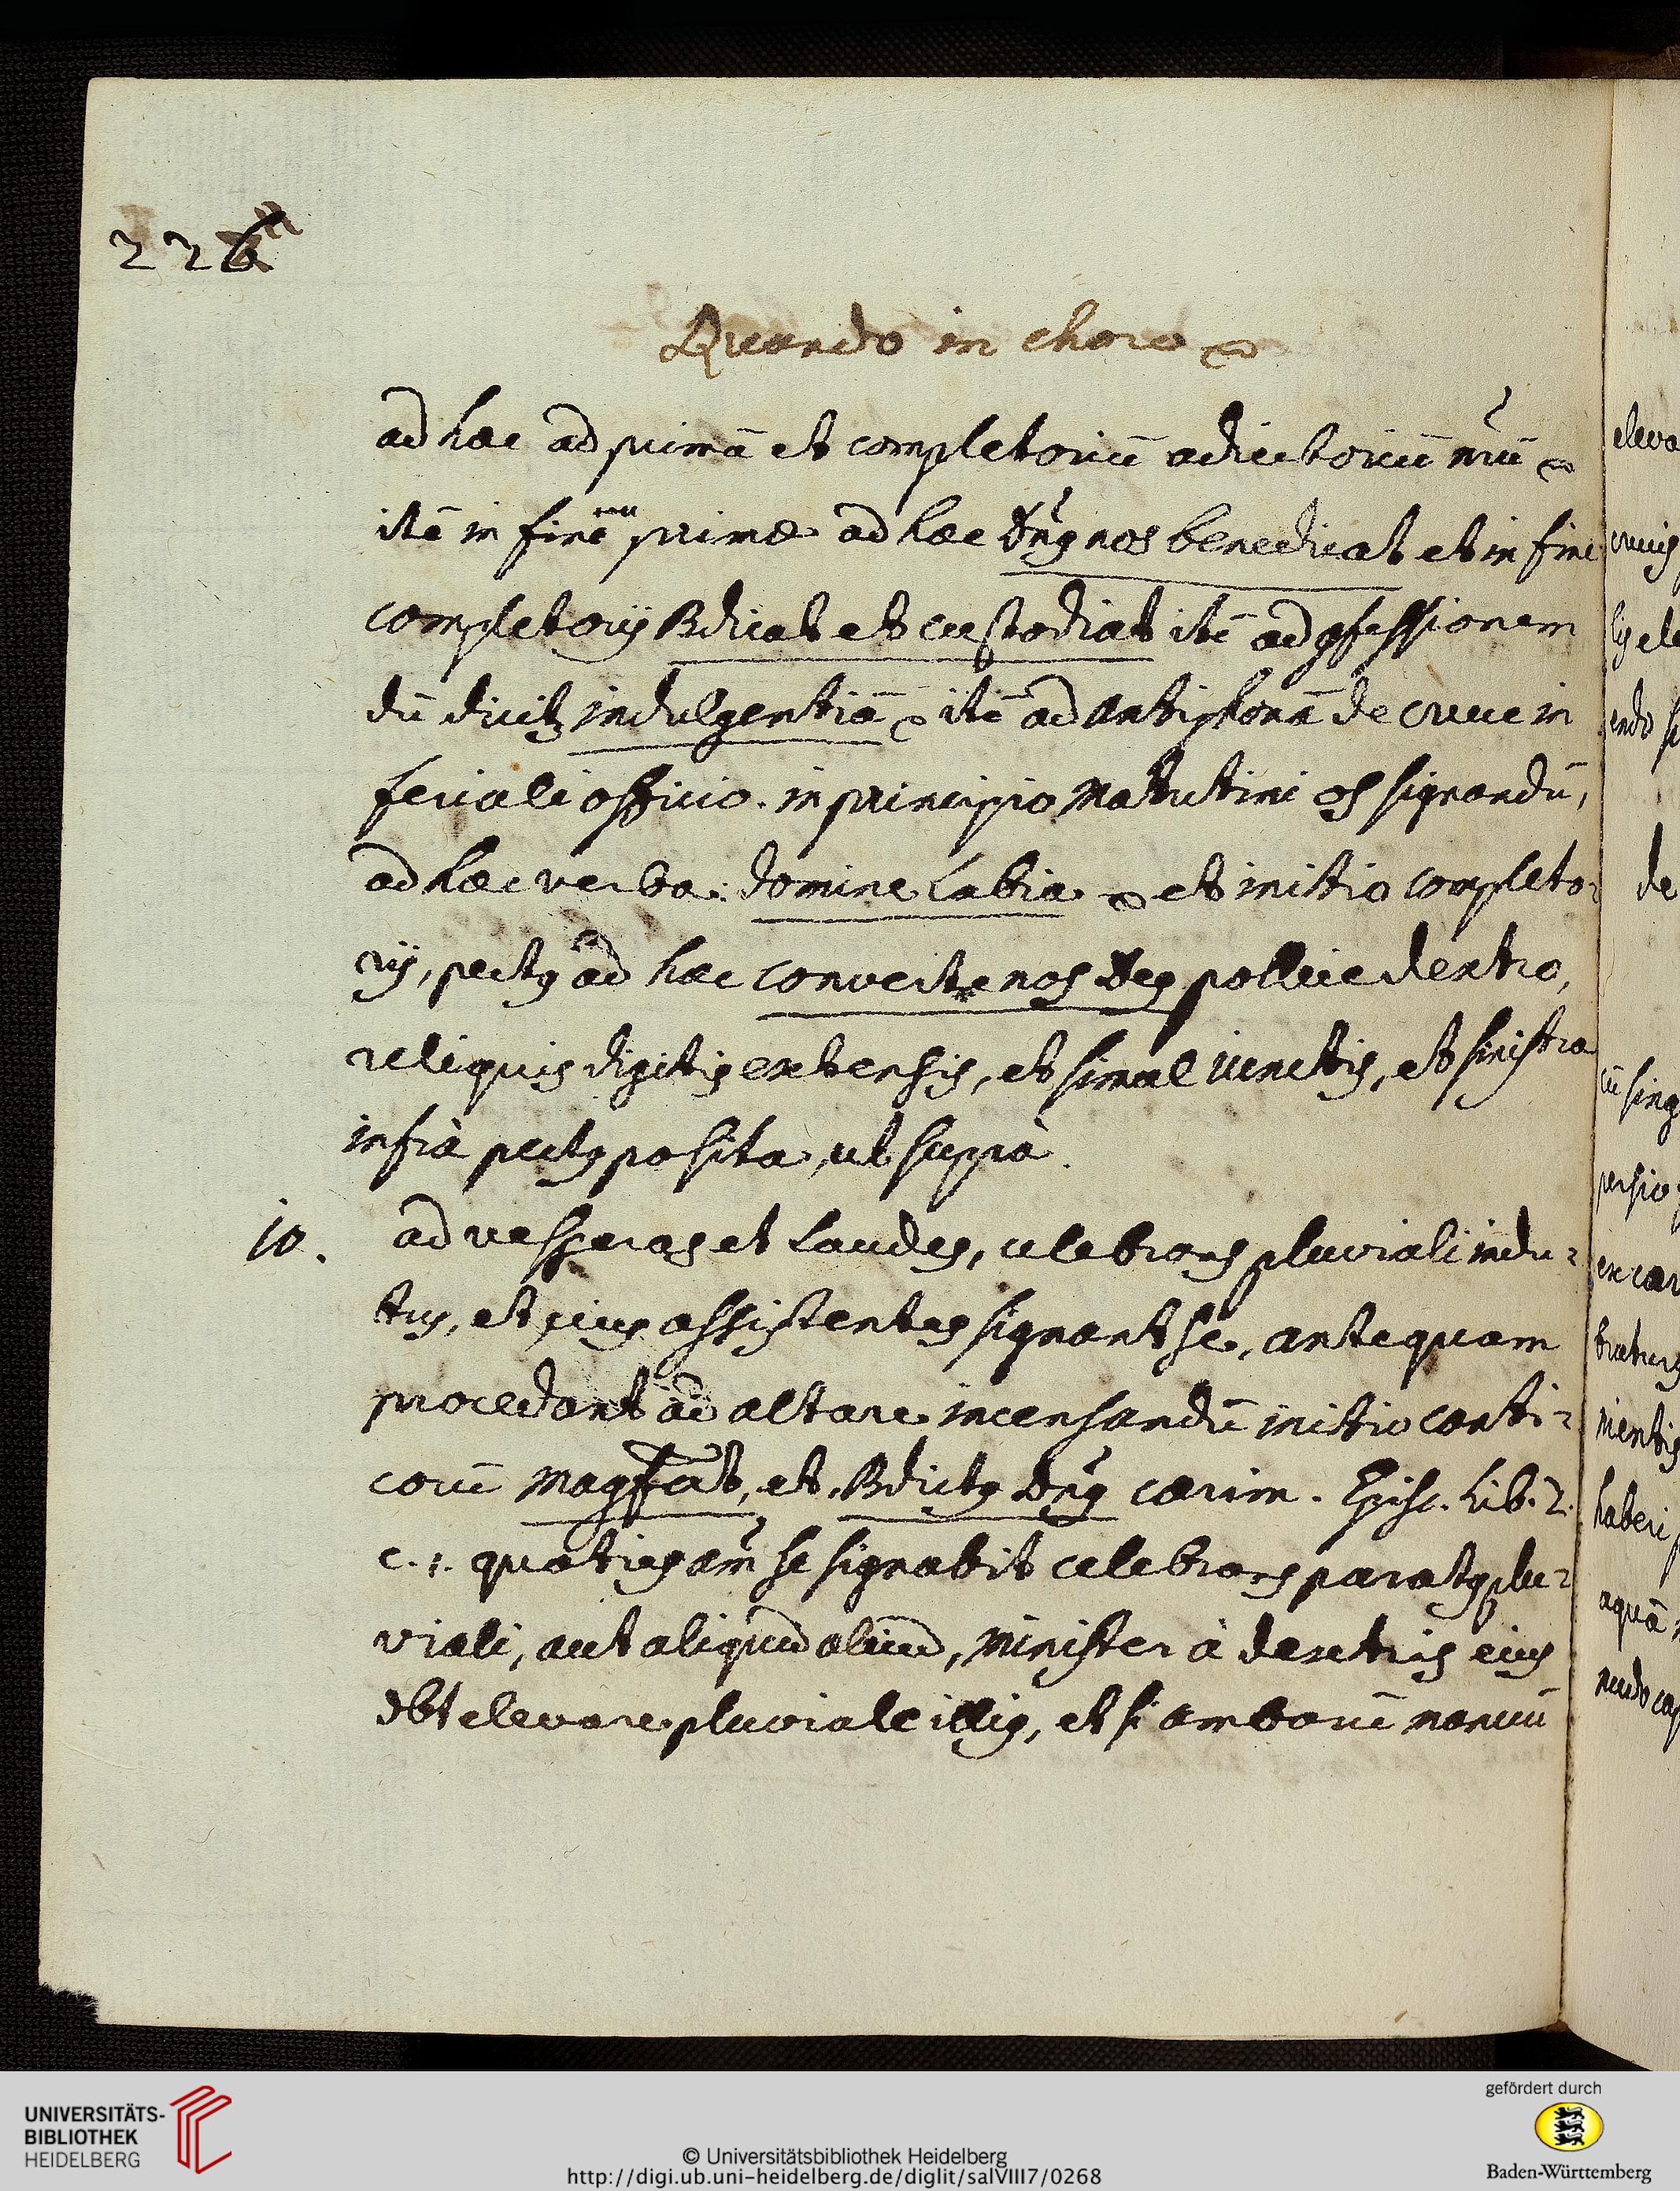 226
Quando in choro
ad hæc ad primā et completoriū adiutoriū nrū
itē in finē primæ ad hæc Dn̄s nos benedicat et in fine
completorij Bdicat et custodiat itē ad cōfessionem
dū dicitr indulgentiā itē ad antiphonā de cruce in
feriali officio. in principio Matutini os signandū,
ad hæc verba: domine labia et initio completo-
rij, pectus ad hæc converte nos Deus pollice dextro,
reliquis digitis extensis, et simul iunctis, et sinistra
infrà pectus posita, ut suprà.
10. ad vesperas et Laudes, celebrans pluviali indu-
tus, et eius assistentes signant se, antequam
procedant ad altare incensandū initio canti-
corū Magfcat, et Bdictus Dn̄s cærim. Episc. Lib. 2.
c. 1. quoties am̄ se signabit celebrans paratus plu-
viali, aut aliquid aliud, minister à dextris eius
dbt elevare pluviale illius, et si amborū manuū
eleva
crucis
ele
endo
de
cū sing
persio
ex car
mentis
haberi
aquā
nudo cap
UNIVERSITÄTS-
BIBLIOTHEK
HEIDELBERG
© Universitätsbibliothek Heidelberg
http://digi.ub.uni-heidelberg.de/diglit/salVIII7/0268
gefördert durch
Baden-Württemberg